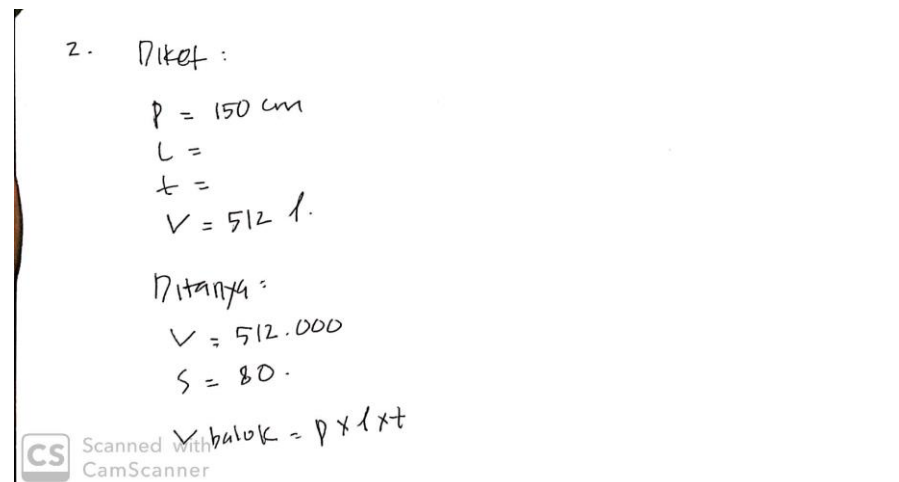 2. Diket :
P = 150 cm
L =
t =
V = 512 l.
Ditanya :
V = 512.000
S = 80.
V balok = p x l x t
CS Scanned with
CamScanner